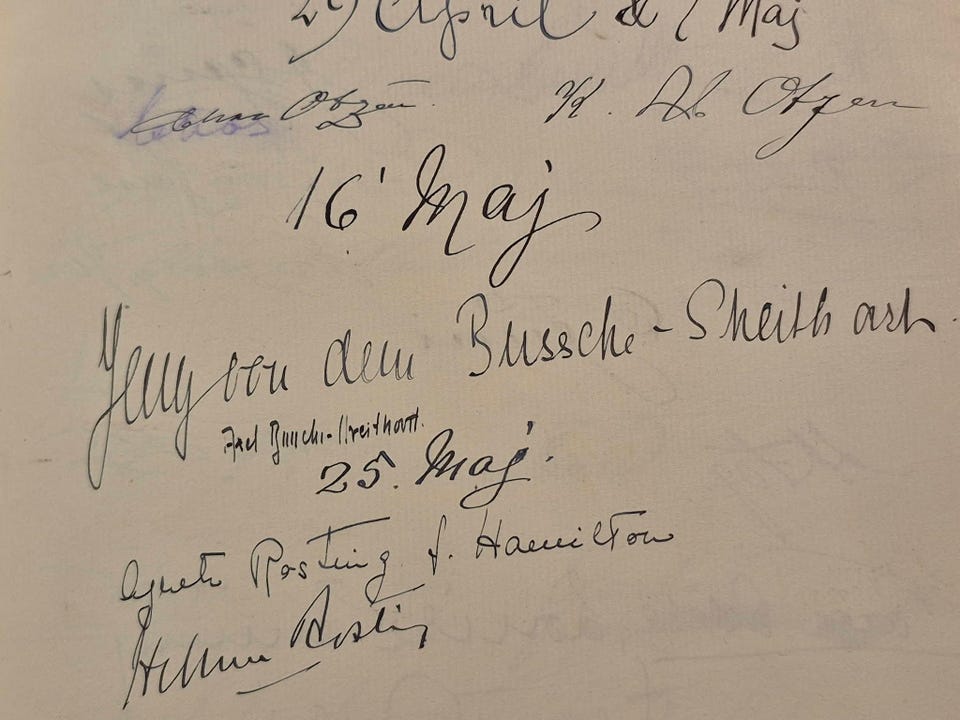 29 April & 7 Maj
Otzen K. Ab Otzen
16' Maj
Jenny von dem Bussche-Streithorst
Axel Bussche-Streithorst.
25. Maj.
Agnete Rosting f. Hamilton
Helmer Rosting